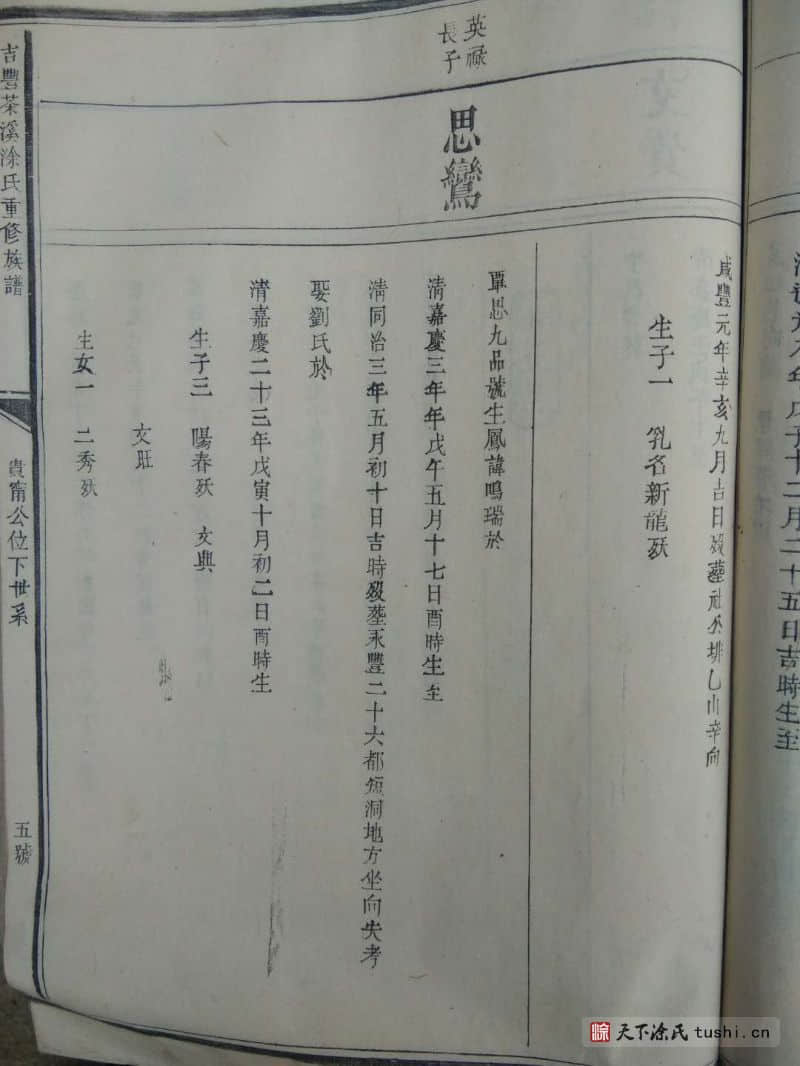 清
年戊子十二月二十五日吉時生至
英祿
長子
思鸞
咸豐元年辛亥九月吉日歿葬社公排乙山辛向
生子一 乳名新龍殀
覃恩九品號生鳳諱鳴瑞於
清嘉慶三年年戊午五月十七日酉時生至
清同治三年五月初十日吉時歿葬永豐二十六都短洞地方坐向失考
娶劉氏於
清嘉慶二十三年戊寅十月初二日酉時生
生子三 陽春殀 文興
文旺
生女一 二秀殀
吉豐茶溪涂氏重修族譜
貴甯公位下世系
五號
天下涂氏 tushi.cn